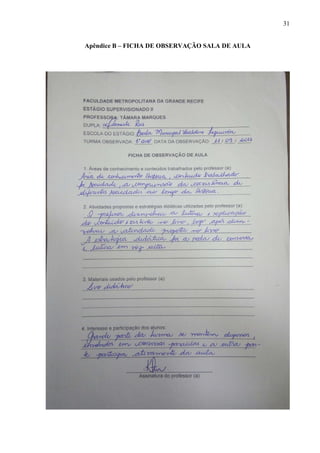 31
Apêndice B – FICHA DE OBSERVAÇÃO SALA DE AULA
FACULDADE METROPOLITANA DA GRANDE RECIFE
ESTÁGIO SUPERVISIONADO II
PROFESSORA: TÂMARA MARQUES
DUPLA:
ESCOLA DO ESTÁGIO: Escola Municipal
TURMA OBSERVADA: 5º ano DATA DA OBSERVAÇÃO:
FICHA DE OBSERVAÇÃO DE AULA
1. Áreas de conhecimento e conteúdos trabalhados pelo professor (a)
Área de conhecimento história, conteúdo trabalhado
foi sociedade, a compreensão da existência de
diferentes sociedades ao longo da história.
2. Atividades propostas e estratégias didáticas utilizadas pelo professor (a)
O professor desenvolveu a leitura e explicação
do conteúdo no livro, logo após desen-
volveu a atividade proposta no livro
A estratégia didática foi a roda de conversa
e leitura em voz alta
3. Materiais usados pelo professor (a)
Livro didático
4. Interesse e participação dos alunos:
Grande parte da turma se mantém dispersa,
envolvidos em conversas paralelas e a outra par-
te participa ativamente da aula
Assinatura do professor (a)